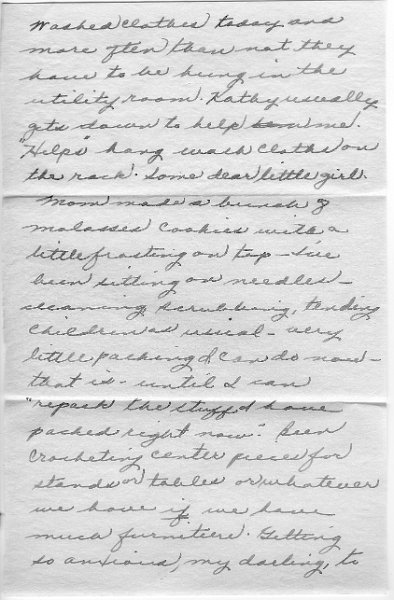 Washed clothes today and
more often than not they
have to be hung in the
utility room. Kathy usually
gets down to help me.
"Helps" hang wash cloths on
the rack. Some dear little girl.
Mom made a bunch of
molasses cookies with a
little frosting on top - I've
been sitting on needles -
cleaning, scrubbing, tending
children as usual - very
little packing I can do now -
that is - until I can
"repack the stuff I have
packed right now". Been
crocheting center pieces for
stands or tables or whatever
we have if we have
much furniture. Getting
so anxious, my darling, to